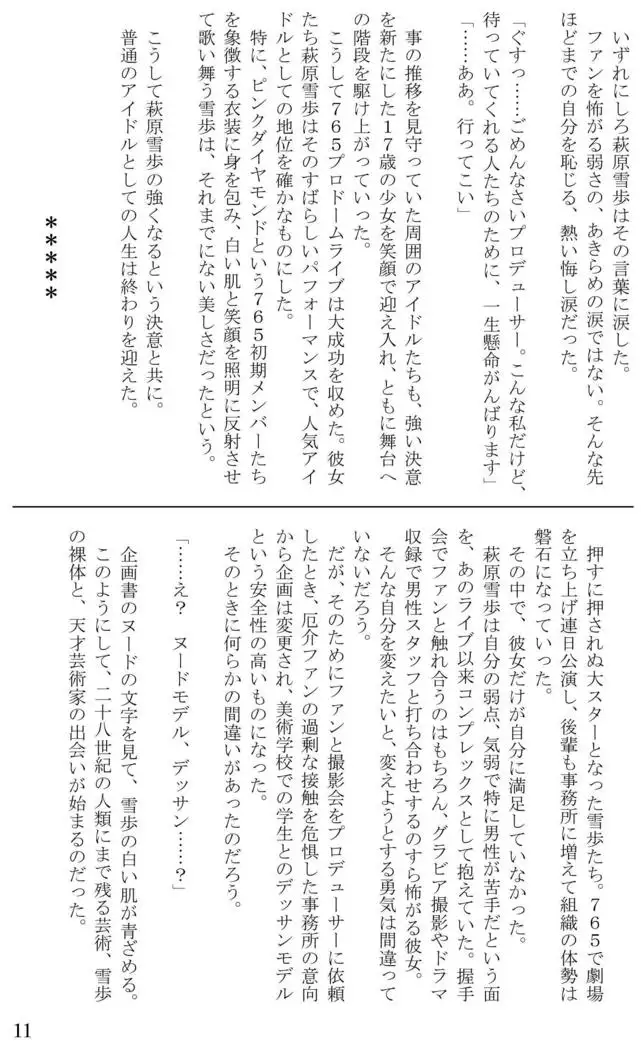 いずれにしろ萩原雪歩はその言葉に涙した。
ファンを怖がる弱さの、あきらめの涙ではない。そんな先
ほどまでの自分を恥じる、熱い悔し涙だった。
「ぐすっ……ごめんなさいプロデューサー。こんな私だけど、
待っていてくれる人たちのために、一生懸命がんばります」
「……ああ。行ってこい」
事の推移を見守っていた周囲のアイドルたちも、強い決意
を新たにした17歳の少女を笑顔で迎え入れ、ともに舞台へ
の階段を駆け上がっていった。
こうして765プロドームライブは大成功を収めた。彼女
たち萩原雪歩はそのすばらしいパフォーマンスで、人気アイ
ドルとしての地位を確かなものにした。
特に、ピンクダイヤモンドという765初期メンバーたち
を象徴する衣装に身を包み、白い肌と笑顔を照明に反射させ
て歌い舞う雪歩は、それまでにない美しさだったという。
こうして萩原雪歩の強くなるという決意と共に。
普通のアイドルとしての人生は終わりを迎えた。
*****
押すに押されぬ大スターとなった雪歩たち。765で劇場
を立ち上げ連日公演し、後輩も事務所に増えて組織の体勢は
磐石になっていった。
その中で、彼女だけが自分に満足していなかった。
萩原雪歩は自分の弱点、気弱で特に男性が苦手だという面
を、あのライブ以来コンプレックスとして抱えていた。握手
会でファンと触れ合うのはもちろん、グラビア撮影やドラマ
収録で男性スタッフと打ち合わせするのすら怖がる彼女。
そんな自分を変えたいと、変えようとする勇気は間違って
いないだろう。
だが、そのためにファンと撮影会をプロデューサーに依頼
したとき、厄介ファンの過剰な接触を危惧した事務所の意向
から企画は変更され、美術学校での学生とのデッサンモデル
という安全性の高いものになった。
そのときに何らかの間違いがあったのだろう。
「……え？　ヌードモデル、デッサン……？」
企画書のヌードの文字を見て、雪歩の白い肌が青ざめる。
このようにして、二十八世紀の人類にまで残る芸術、雪歩
の裸体と、天才芸術家の出会いが始まるのだった。
11